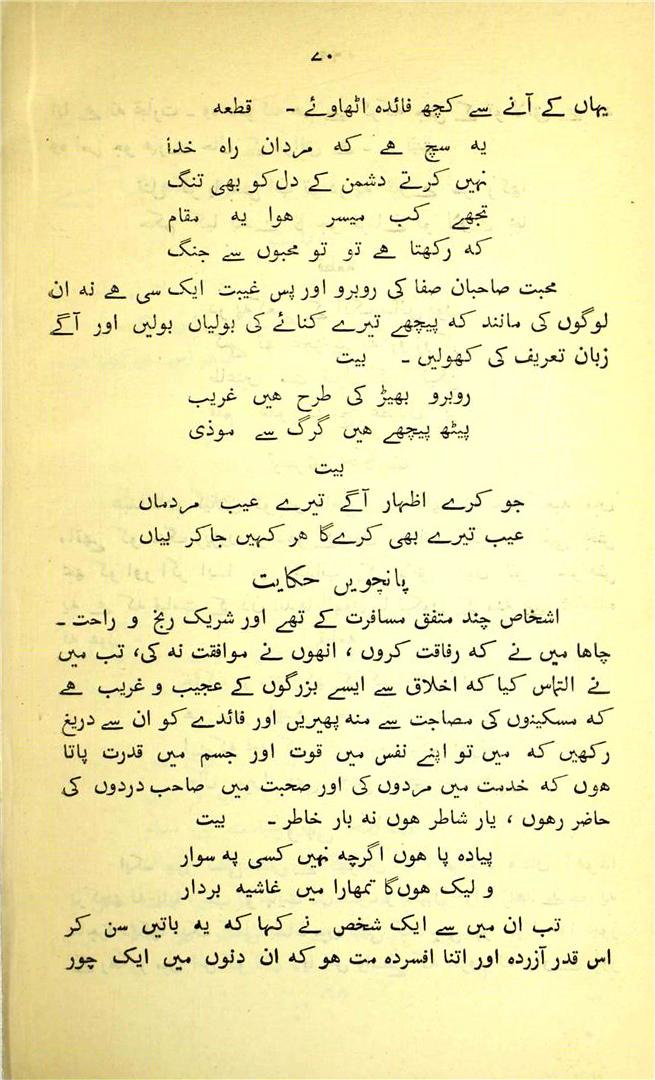 ۷۰
یہاں کے آنے سے کچھ فائدہ اٹھاوئے ۔ قطعہ
یہ سچ ہے کہ مردان راہ خدا
نہیں کرتے دشمن کے دل کو بھی تنگ
تجھے کب میسر ہوا یہ مقام
کہ رکھتا ہے تو تو محبوں سے جنگ
محبت صاحبان صفا کی روبرو اور پس غیبت ایک سی ہے نہ ان
لوگوں کی مانند کہ پیچھے تیرے کنائے کی بولیاں بولیں اور آگے
زبان تعریف کی کھولیں ۔ بیت
روبرو بھیڑ کی طرح ہیں غریب
پیٹھ پیچھے ہیں گرگ سے موذی
بیت
جو کرے اظہار آگے تیرے عیب مردماں
عیب تیرے بھی کرے گا ہر کہیں جا کر بیاں
پانچویں حکایت
اشخاص چند متفق مسافرت کے تھے اور شریک رنج و راحت ۔
چاہا میں نے کہ رفاقت کروں ، انھوں نے موافقت نہ کی، تب میں
نے التماس کیا کہ اخلاق سے ایسے بزرگوں کے عجیب و غریب ہے
کہ مسکینوں کی مصاحبت سے منہ پھیریں اور فائدے کو ان سے دریغ
رکھیں کہ میں تو اپنے نفس میں قوت اور جسم میں قدرت پاتا
ہوں کہ خدمت میں مردوں کی اور صحبت میں صاحب دردوں کی
حاضر رہوں ، یار شاطر ہوں نہ بار خاطر ۔ بیت
پیادہ پا ہوں اگرچہ نہیں کسی پہ سوار
و لیک ہوں گا تمھارا میں غاشیہ بردار
تب ان میں سے ایک شخص نے کہا کہ یہ باتیں سن کر
اس قدر آزردہ اور اتنا افسردہ مت ہو کہ ان دنوں میں ایک چور